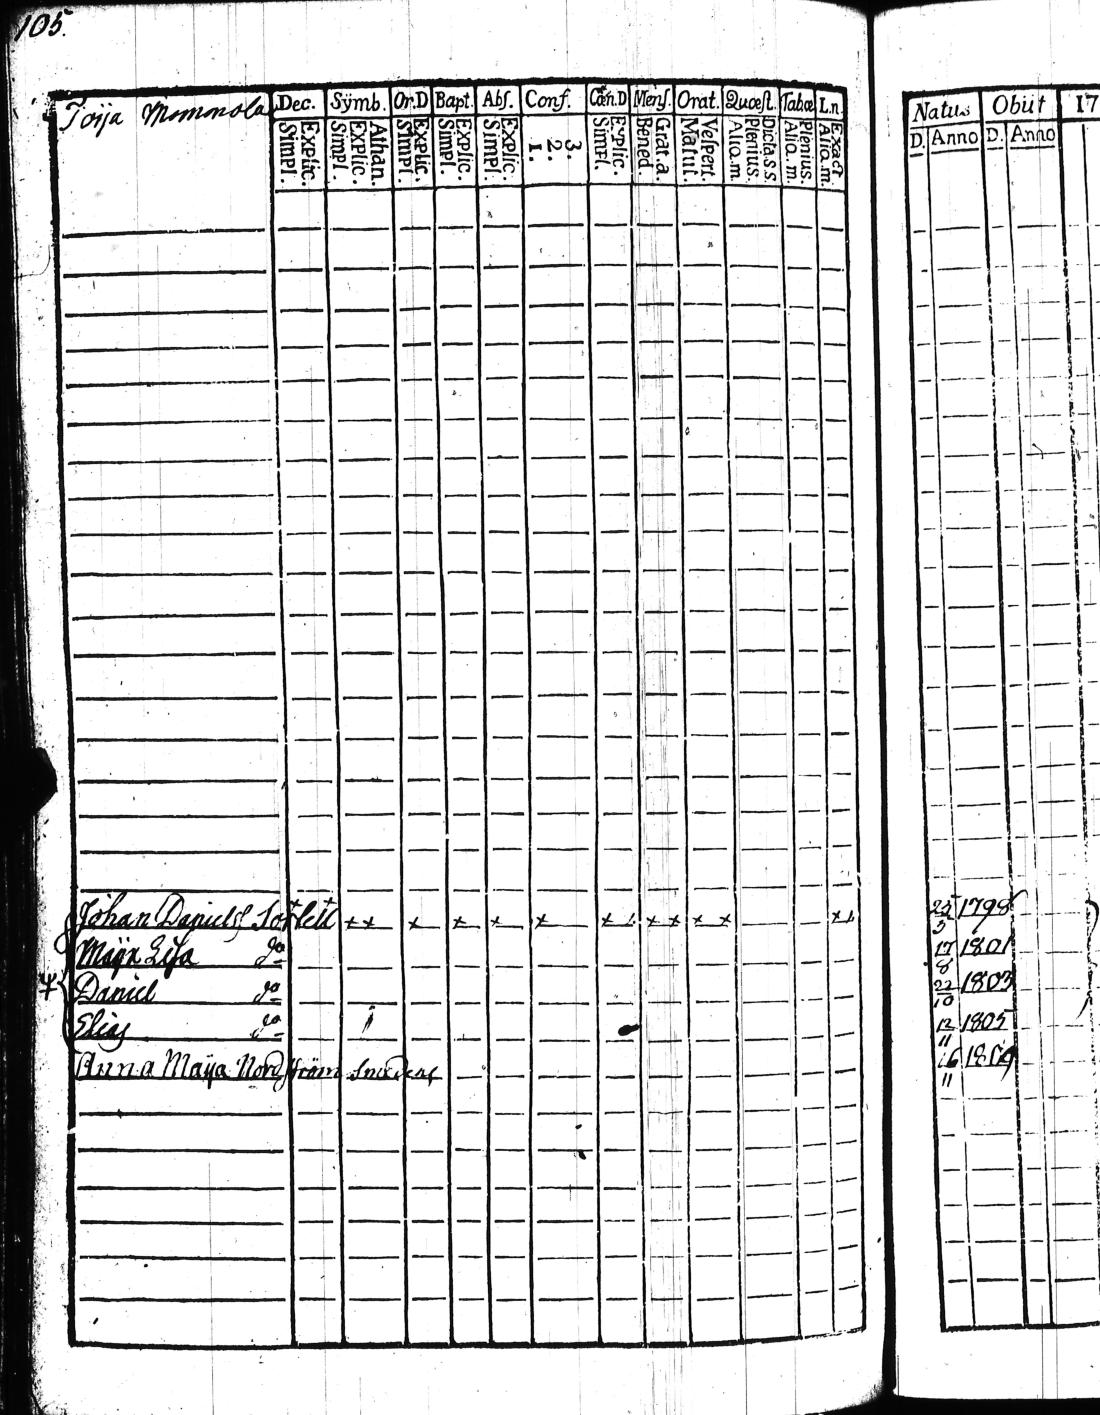 105.
Toija Mommola Dec. Sÿmb. Or.D Bapt. Abſ. Conf. Can.D Menſ. Orat. Quœſt. Tabœ L.n. Natus Obiit 17
Simpl. Explic. Simpl. Explic. Athan. Simpl. Explic. Simpl. Explic. Simpl. Explic. 1. 2. 3. Simpl. Explic. Bened. Grat.a. Matut. Veſpert. Aliq.m. Plenius. Dicta.s.s. Aliq.m. Plenius. Aliq.m. Exact D. Anno D. Anno
Johan Danielſ. x x x x x x x x x x x x x 25/5 1798
Maÿa Liſa do 17/8 1801
Daniel do 22/10 1803
Elias do 12/11 1805
Anna Maÿa Nordſtröm Smedens 16/11 1809